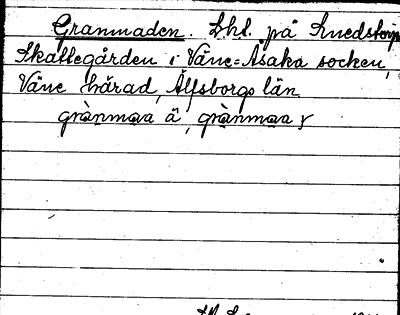 Granmaden. Lhl. på Knedstorp
Skattegården i Väne-Åsaka socken,
Väne härad, Älfsborgs län
grànmaa ä, grànmaa